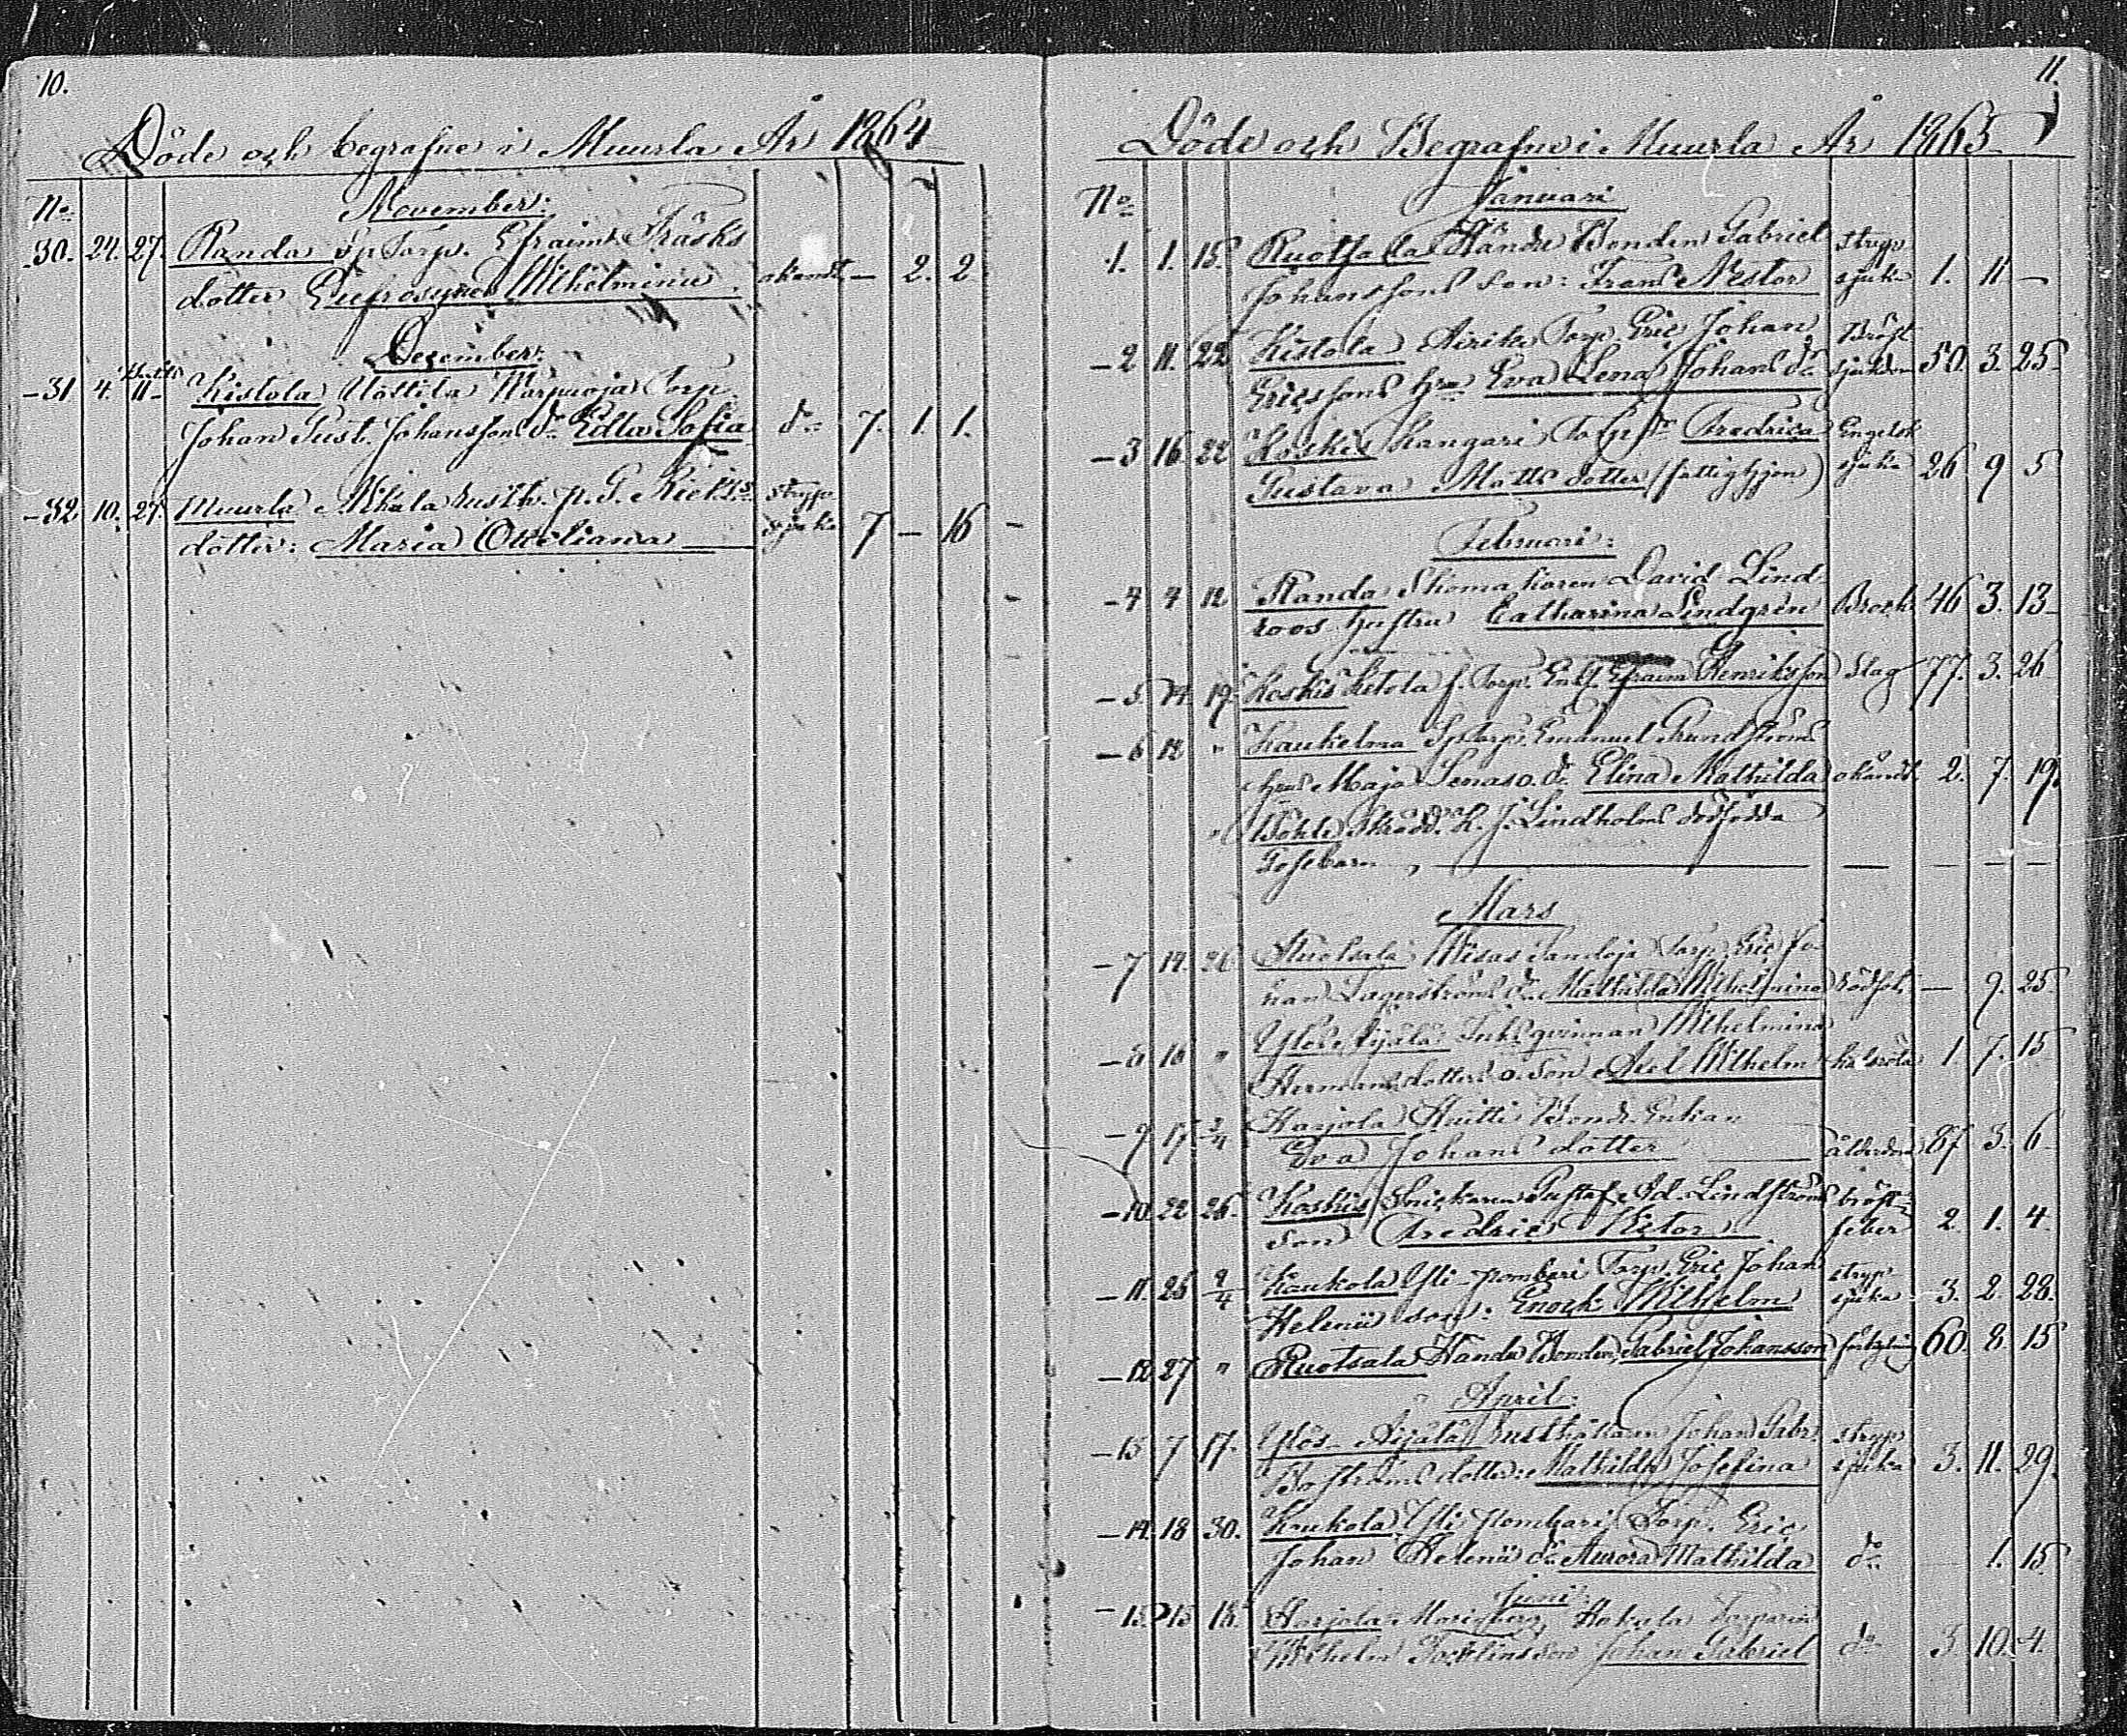 10.
Döde och begrafne i Muurla År 1864
No
November:
30. 24. 27. Randa Sp Torp. Efraim Träsks
dotter Eufrosyne Wilhelmina. okändt — 2. 2
December:
31 4. 11 Kistola Uotila Torp.
Johan Gust. Johanssons dr Edla Sofia do 7. 1. 1.
32 10. 27. Muurla Nihala rusth. p. G.
dotter: Maria Otteliana stryp sjuka 7 — 16 —
11.
Döde och Begrafne i Muurla År 1865
No
Januari
1. 1. 15. Ruotsala Händu Bonden Gabriel stryp
Johanssons son: Frans Nestor sjuka 1. 11 —
2 11. 22 Kistola Airiku Torp. Eric Johan Bröst
Ericssons hru Eva Lena Johans dr sjukdom 50. 3. 25
3 16 22 Koskis Kangari Fredrica Engelsk
Gustava Matts dotter (fattighjon) sjuka 26 9 5
Februari:
4 4 12 Randa Skomakaren David Lind-
roos hustru Catharina Lindgren Brock 46 3. 13
5 14. 19. Koskis Ketola f. Torp. Enkl. Efraim Henriksson Slag 77. 3. 26
6 18 " Kaukelma Sptorp. Emanuel Grundströms
hrus Maja Lenas o. dr Elina Mathilda okändt 2. 7. 19.
" Skrädd. K. J. Lindholms dödfödda
Gossebarn, — — — —
Mars
7 14. 26 Ruotsala Wisas Torp. Eric Jo-
han Lagerströms dr Mathilda Wilhelmina — 9. 25
8 16 " Ylös Äijälä Inhs. qvinnan Wilhelmina
Hermansdotters o. son Axel Wilhelm halsröta 1. 7. 15
9 17 2/4 Karjola Huitti Bond. Enkan
Eva Johans dotter ålderdom 87 3. 6
10. 22 26. Koskis Snickaren Gustaf Ad. Lindströms bröst
son Fredric Victor feber 2. 1. 4
11. 26 2/4 Kaukola Yli-pombari Torp. Eric Johan stryp
Helenii son: Enoch Wilhelm sjuka 3. 2. 28.
12 27 " Ruotsala Handu Bonden Gabriel Johansson 60. 8. 15
April:
13 7 17. Ylös-Äijälä Rusthållaren Johan Gabr. stryp
Boströms dotter: Mathilda Josefina sjuka 3. 11. 29.
14. 18 30. Kaukola Yli Pombari Torp. Eric
Johan Helenii dr Aurora Mathilda do 1. 15
Juni
15. 15 18. Karjola Hakala Torparen
Wilhelm son Johan Gabriel do 3 10. 4.